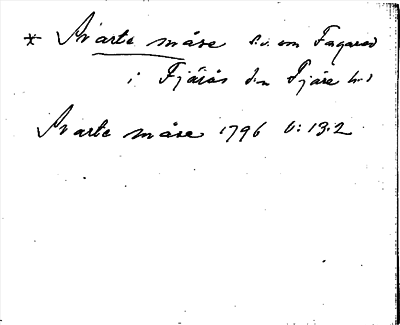 * Svarte måse s.v. om Fagared
i Fjärås sn Fjäre hd
Svarte måse 1796 6:13.2